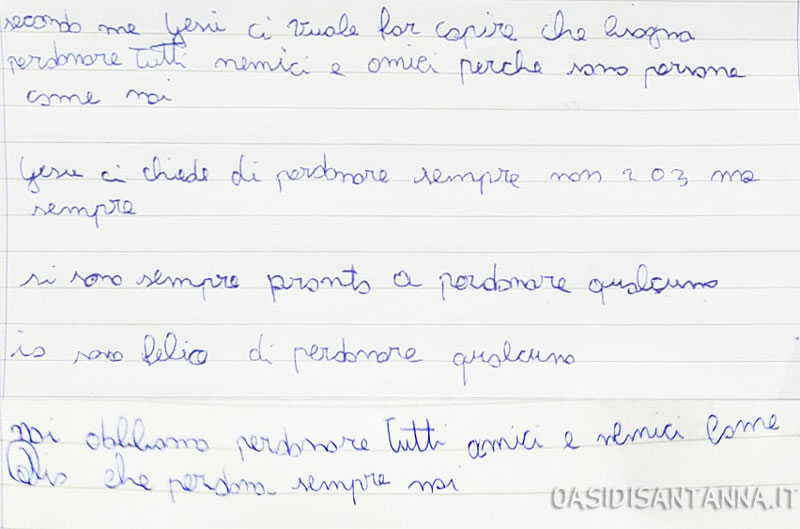 secondo me Gesù ci vuole far capire che bisogna
perdonare tutti nemici e amici perche sono persone
come noi
Gesu ci chiede di perdonare sempre non 2 o 3 ma
sempre
si sono sempre pronto a perdonare qualcuno
io sono felice di perdonare qualcuno
noi abbiamo perdonare tutti amici e nemici come
Dio che perdona sempre noi
OASIDISANTANNA.IT